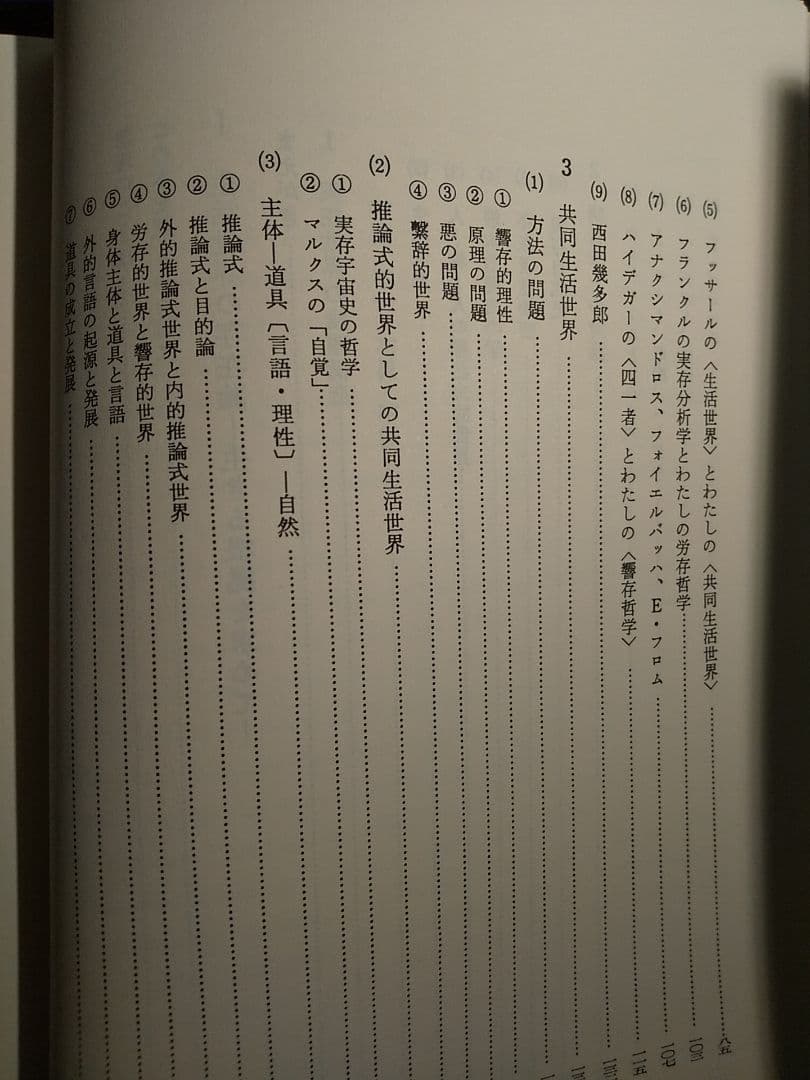 (5) フッサールの〈生活世界〉とわたしの〈共同生活世界〉……八五
(6) フランクルの実存分析学とわたしの労存哲学……一〇三
(7) アナクシマンドロス、フォイエルバッハ、E・フロム……一〇七
(8) ハイデガーの〈四一者〉とわたしの〈響存哲学〉……一一五
(9) 西田幾多郎……
3 共同生活世界……
(1) 方法の問題……
① 響存的理性……
② 原理の問題……
③ 悪の問題……
④ 繫辞的世界……
(2) 推論式的世界としての共同生活世界……
① 実存宇宙史の哲学……
② マルクスの「自覚」……
(3) 主体―道具〔言語・理性〕―自然……
① 推論式……
② 推論式と目的論……
③ 外的推論式世界と内的推論式世界……
④ 労存的世界と響存的世界……
⑤ 身体主体と道具と言語……
⑥ 外的言語の起源と発展……
⑦ 道具の成立と発展……